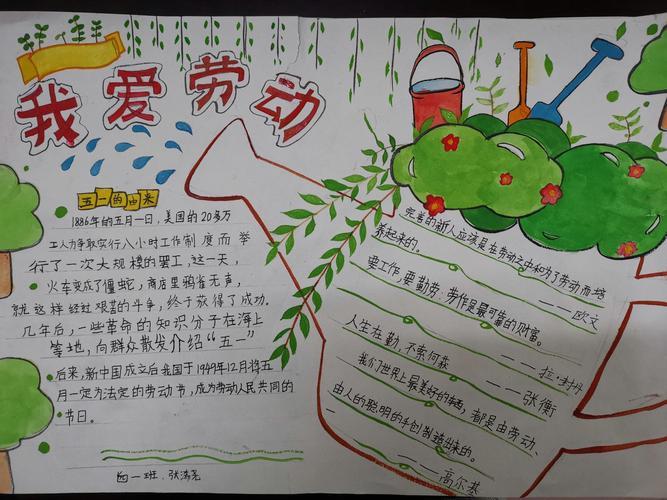 我爱劳动
五一的由来
1886年的五月一日，美国的20多万
工人为争取实行八小时工作制度而举
行了一次大规模的罢工，这一天，
火车变成了僵蛇，商店里鸦雀无声，
就这样经过艰苦的斗争，终于获得了成功。
几年后，一些革命的知识分子在海上
等地，向群众散发介绍“五一”
后来，新中国成立后我国于1949年12月将五
月一定为法定的劳动节，成为劳动人民共同的
节日。
四一班、张满尧
完善的新人应该是在劳动之中和为了劳动而培
养起来的。
——欧文
要工作，要勤劳：劳作是最可靠的财富。
——拉·封丹
人生在勤，不索何获
——张衡
我们世界上最美好的东西，都是由劳动、
由人的聪明的手创制造出来的。
——高尔基